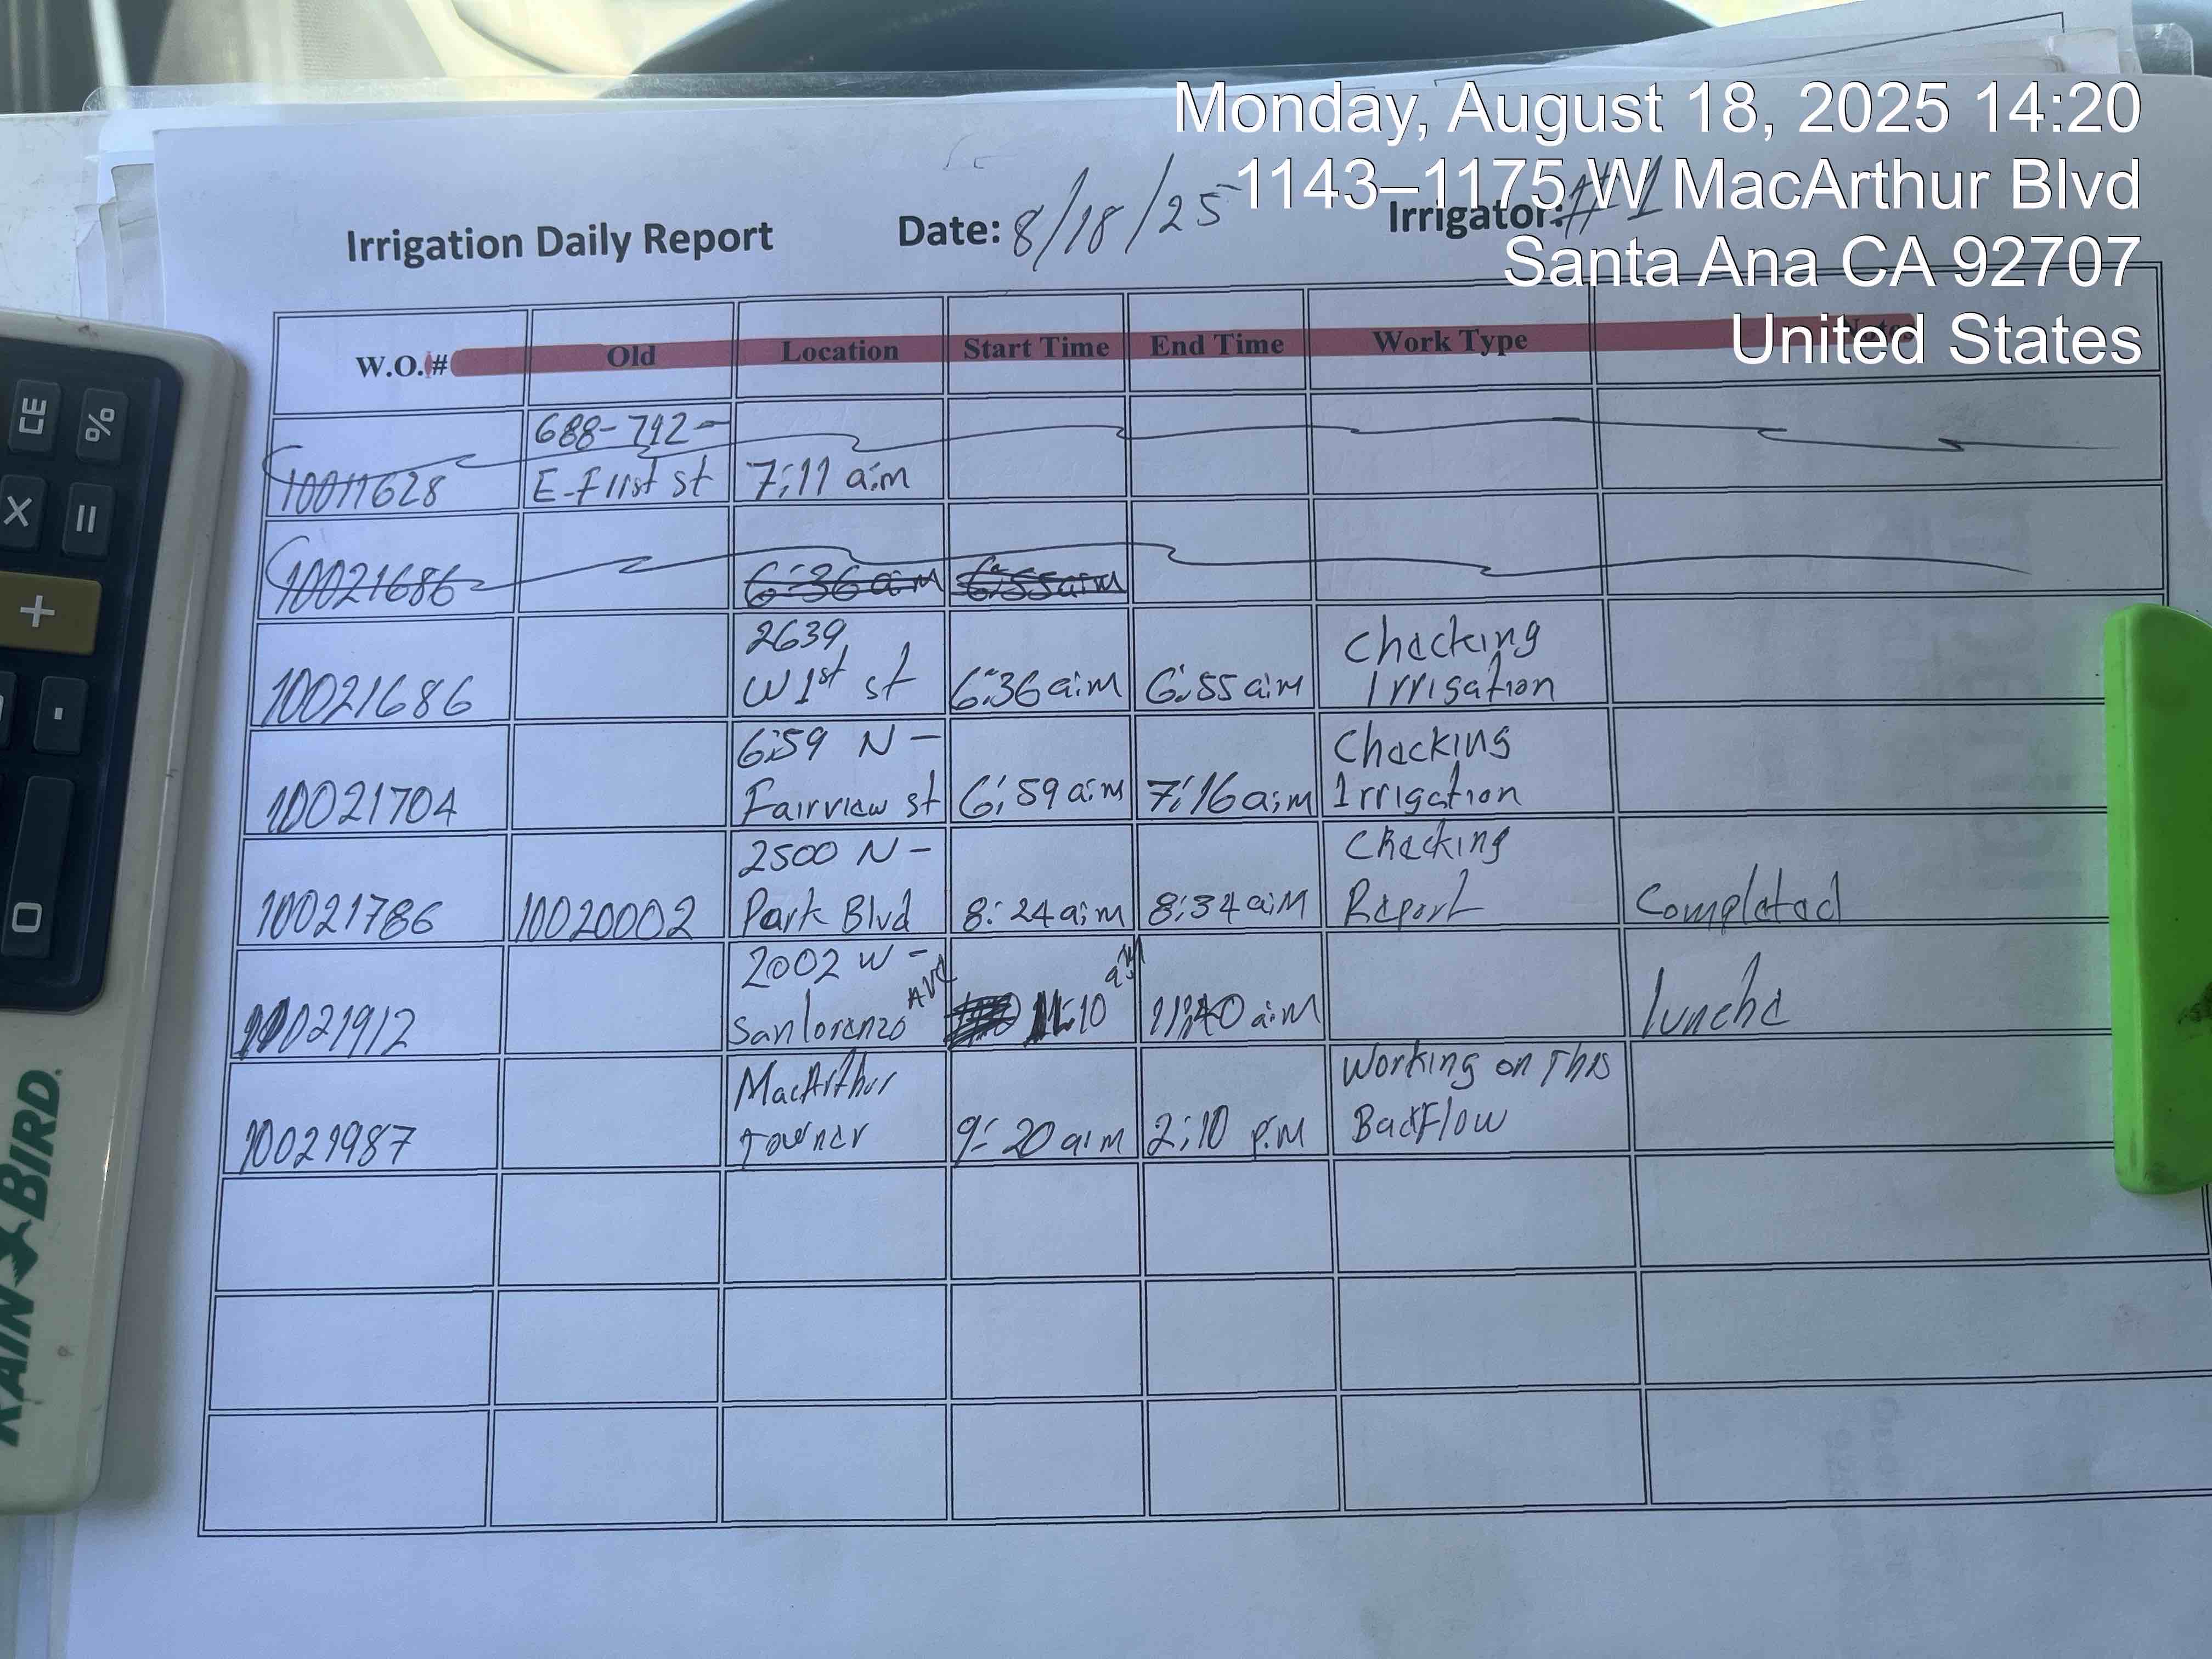 Monday, August 18, 2025 14:20
1143–1175 W MacArthur Blvd
Santa Ana CA 92707
United States
Irrigation Daily Report Date: 8/18/25 Irrigator: #1
W.O.# Old Location Start Time End Time Work Type Notes
688-742-
10011628 E-First st 7:11 a:m
10021686 6:36 a:m 6:55 a:m
2639 Checking
10021686 W 1st st 6:36 a:m 6:55 a:m Irrigation
6:59 N- Checking
10021704 Fairview st 6:59 a:m 7:16 a:m Irrigation
2500 N- Checking
10021786 10020002 Park Blvd 8:24 a:m 8:34 a:m Report Completed
2002 W-
10021912 San lorenzo AVE 11:10 a:m 11:40 a:m lunche
MacArthur Working on This
10021987 towner 9:20 a:m 2:10 p:m Backflow
CE %
X =
+
.
0
RAIN BIRD